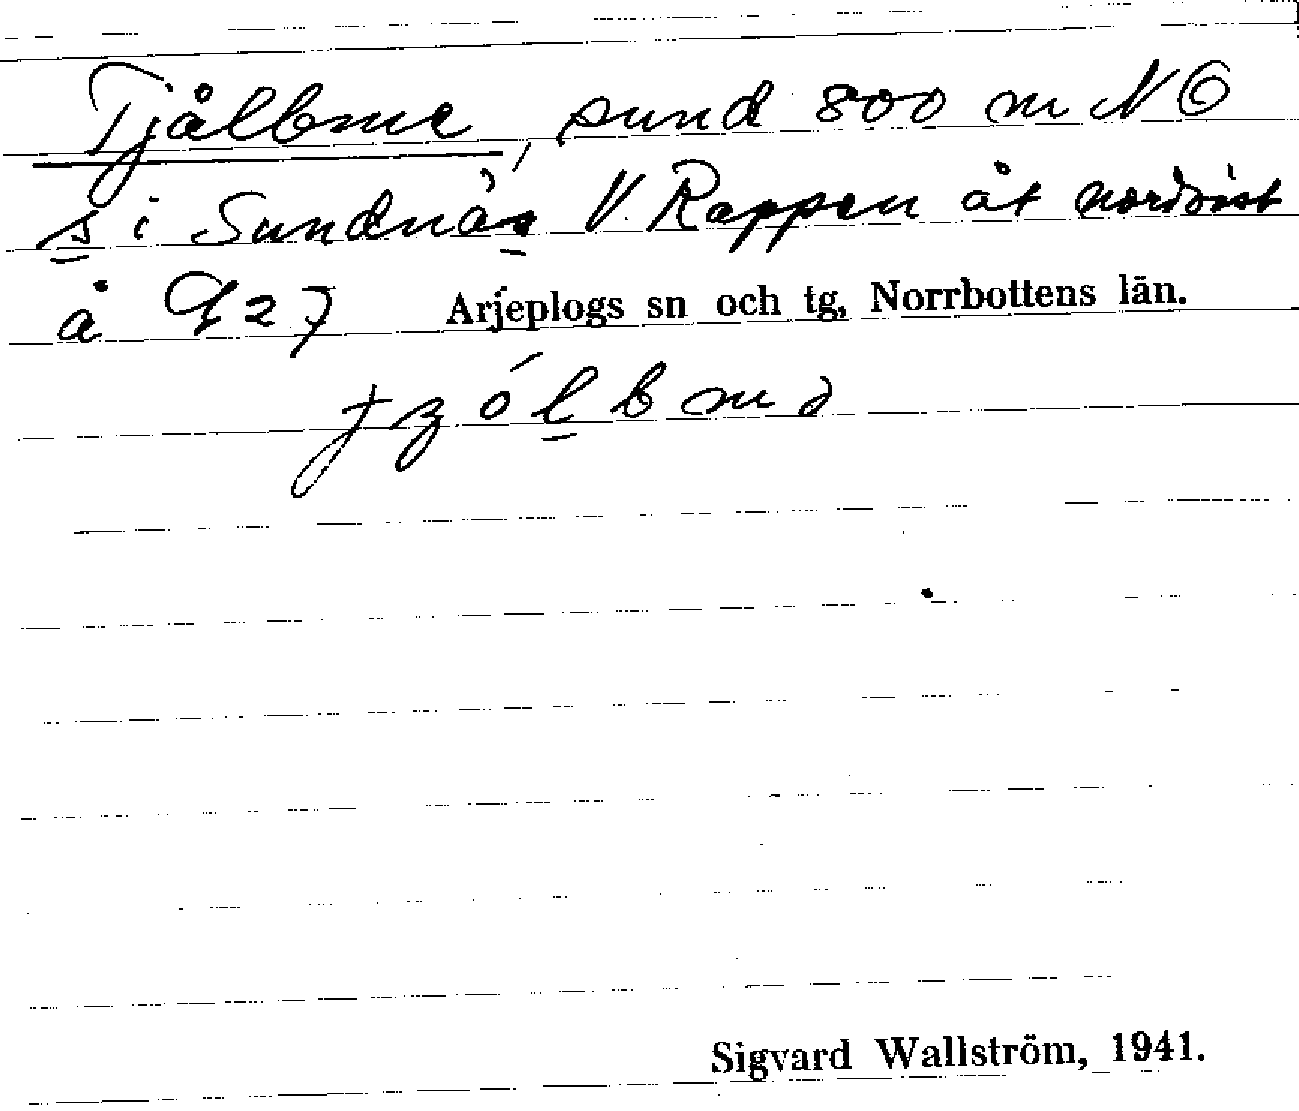 Tjålbme, sund 800 m NO
s i Sundnäs V. Rappen åt nordöst
å 927 Arjeplogs sn och tg, Norrbottens län.
Sigvard Wallström, 1941.